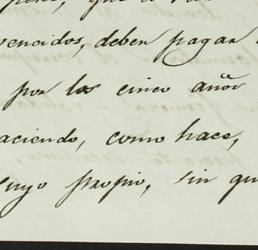 vencidos, deben pagar
por los cinco años
haciendo, como hace,
suyo propio, sin